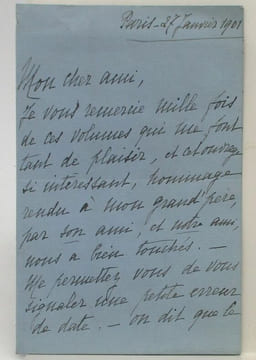 Paris - 27 Janvier 1901
Mon cher ami,
Je vous remercie mille fois
de ces volumes qui me font
tant de plaisir, et cet ouvrage
si intéressant, hommage
rendu à mon grand'père,
par son ami, et notre ami,
nous a bien touchés. —
Me permettez vous de vous
signaler une petite erreur
de date. — on dit que le